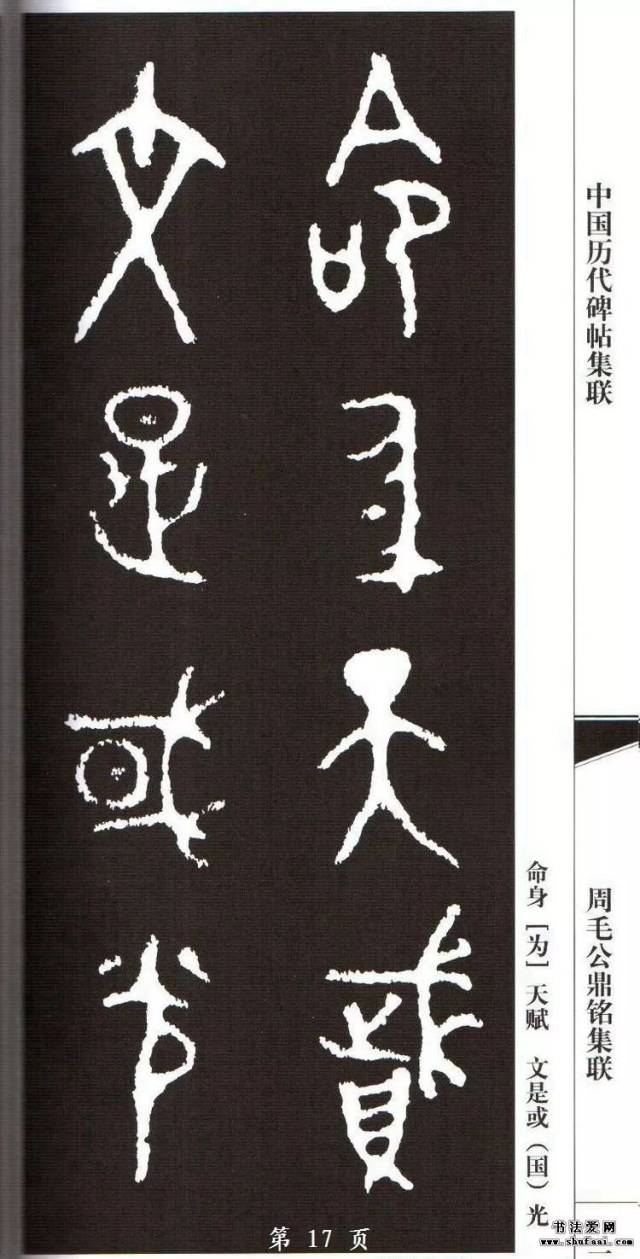 命身天赋
文是或光
命身［为］天赋　文是或（国）光
中国历代碑帖集联
周毛公鼎铭集联
第 17 页
书法爱网
www.shufaai.com